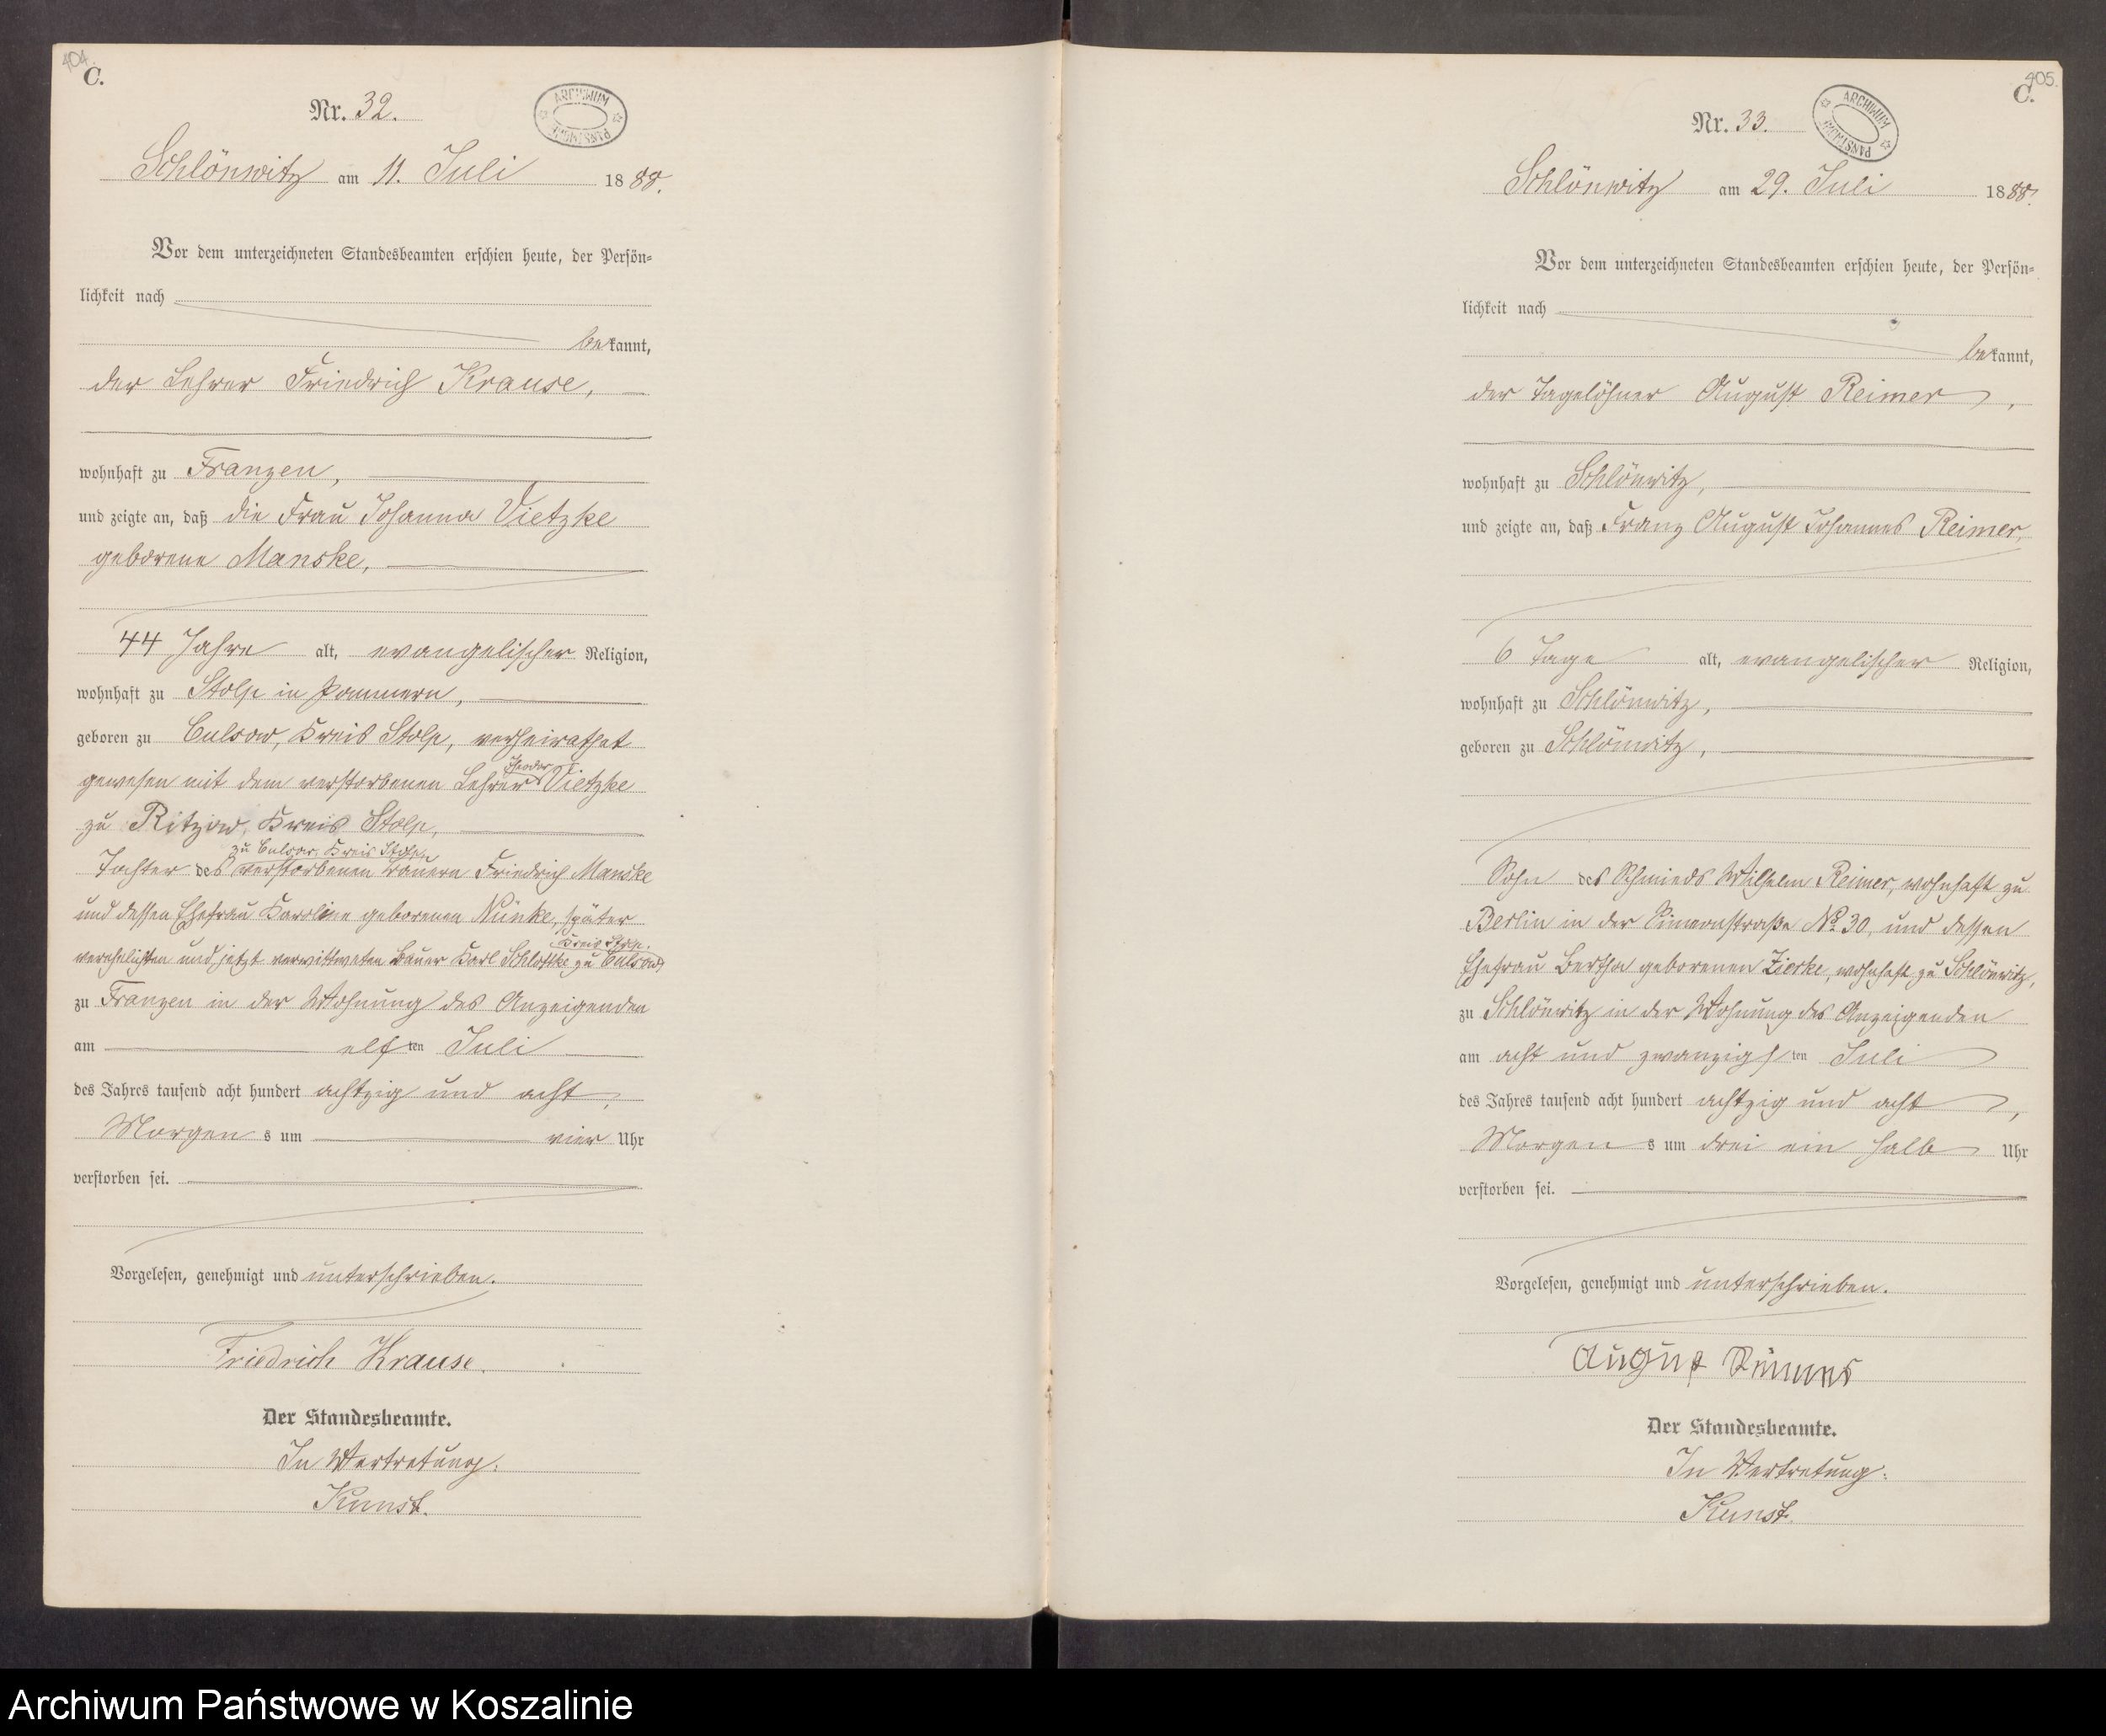 404.
C.
Nr. 32.
ARCHIWUM PAŃSTWOWE
Schlönwitz am 11. Juli 1888.
Vor dem unterzeichneten Standesbeamten erschien heute, der Persön-
lichkeit nach
bekannt,
der Lehrer Friedrich Krause,
wohnhaft zu Franzen,
und zeigte an, daß die Frau Johanna Vietzke
geborene Manske,
44 Jahre alt, evangelischer Religion,
wohnhaft zu Stolp in Pommern,
geboren zu Culsow, Kreis Stolp, verheirathet
gewesen mit dem verstorbenen Lehrer Theodor Vietzke
zu Ritzow, Kreis Stolp,
zu Culsow, Kreis Stolp,
Tochter des verstorbenen Bauern Friedrich Manske
und dessen Ehefrau Karoline geborenen Nünke, später
Kreis Stolp.
verehelichten und jetzt verwittweten Bauer Karl Schlottke zu Culsow
zu Franzen in der Wohnung des Anzeigenden
am elften Juli
des Jahres tausend acht hundert achtzig und acht,
Morgens um vier Uhr
verstorben sei.
Vorgelesen, genehmigt und unterschrieben.
Friedrich Krause.
Der Standesbeamte.
In Vertretung:
Kunst.
405.
C.
Nr. 33.
ARCHIWUM PAŃSTWOWE
Schlönwitz am 29. Juli 1888.
Vor dem unterzeichneten Standesbeamten erschien heute, der Persön-
lichkeit nach
bekannt,
der Tagelöhner August Reimer,
wohnhaft zu Schlönwitz,
und zeigte an, daß Franz August Johannes Reimer,
6 Tage alt, evangelischer Religion,
wohnhaft zu Schlönwitz,
geboren zu Schlönwitz,
Sohn des Schmieds Wilhelm Reimer, wohnhaft zu
Berlin in der Simeonstraße No 30, und dessen
Ehefrau Bertha geborenen Zierke, wohnhaft zu Schlönwitz,
zu Schlönwitz in der Wohnung des Anzeigenden
am acht und zwanzigsten Juli
des Jahres tausend acht hundert achtzig und acht,
Morgens um drei ein halb Uhr
verstorben sei.
Vorgelesen, genehmigt und unterschrieben.
August Reimer
Der Standesbeamte.
In Vertretung:
Kunst.
Archiwum Państwowe w Koszalinie